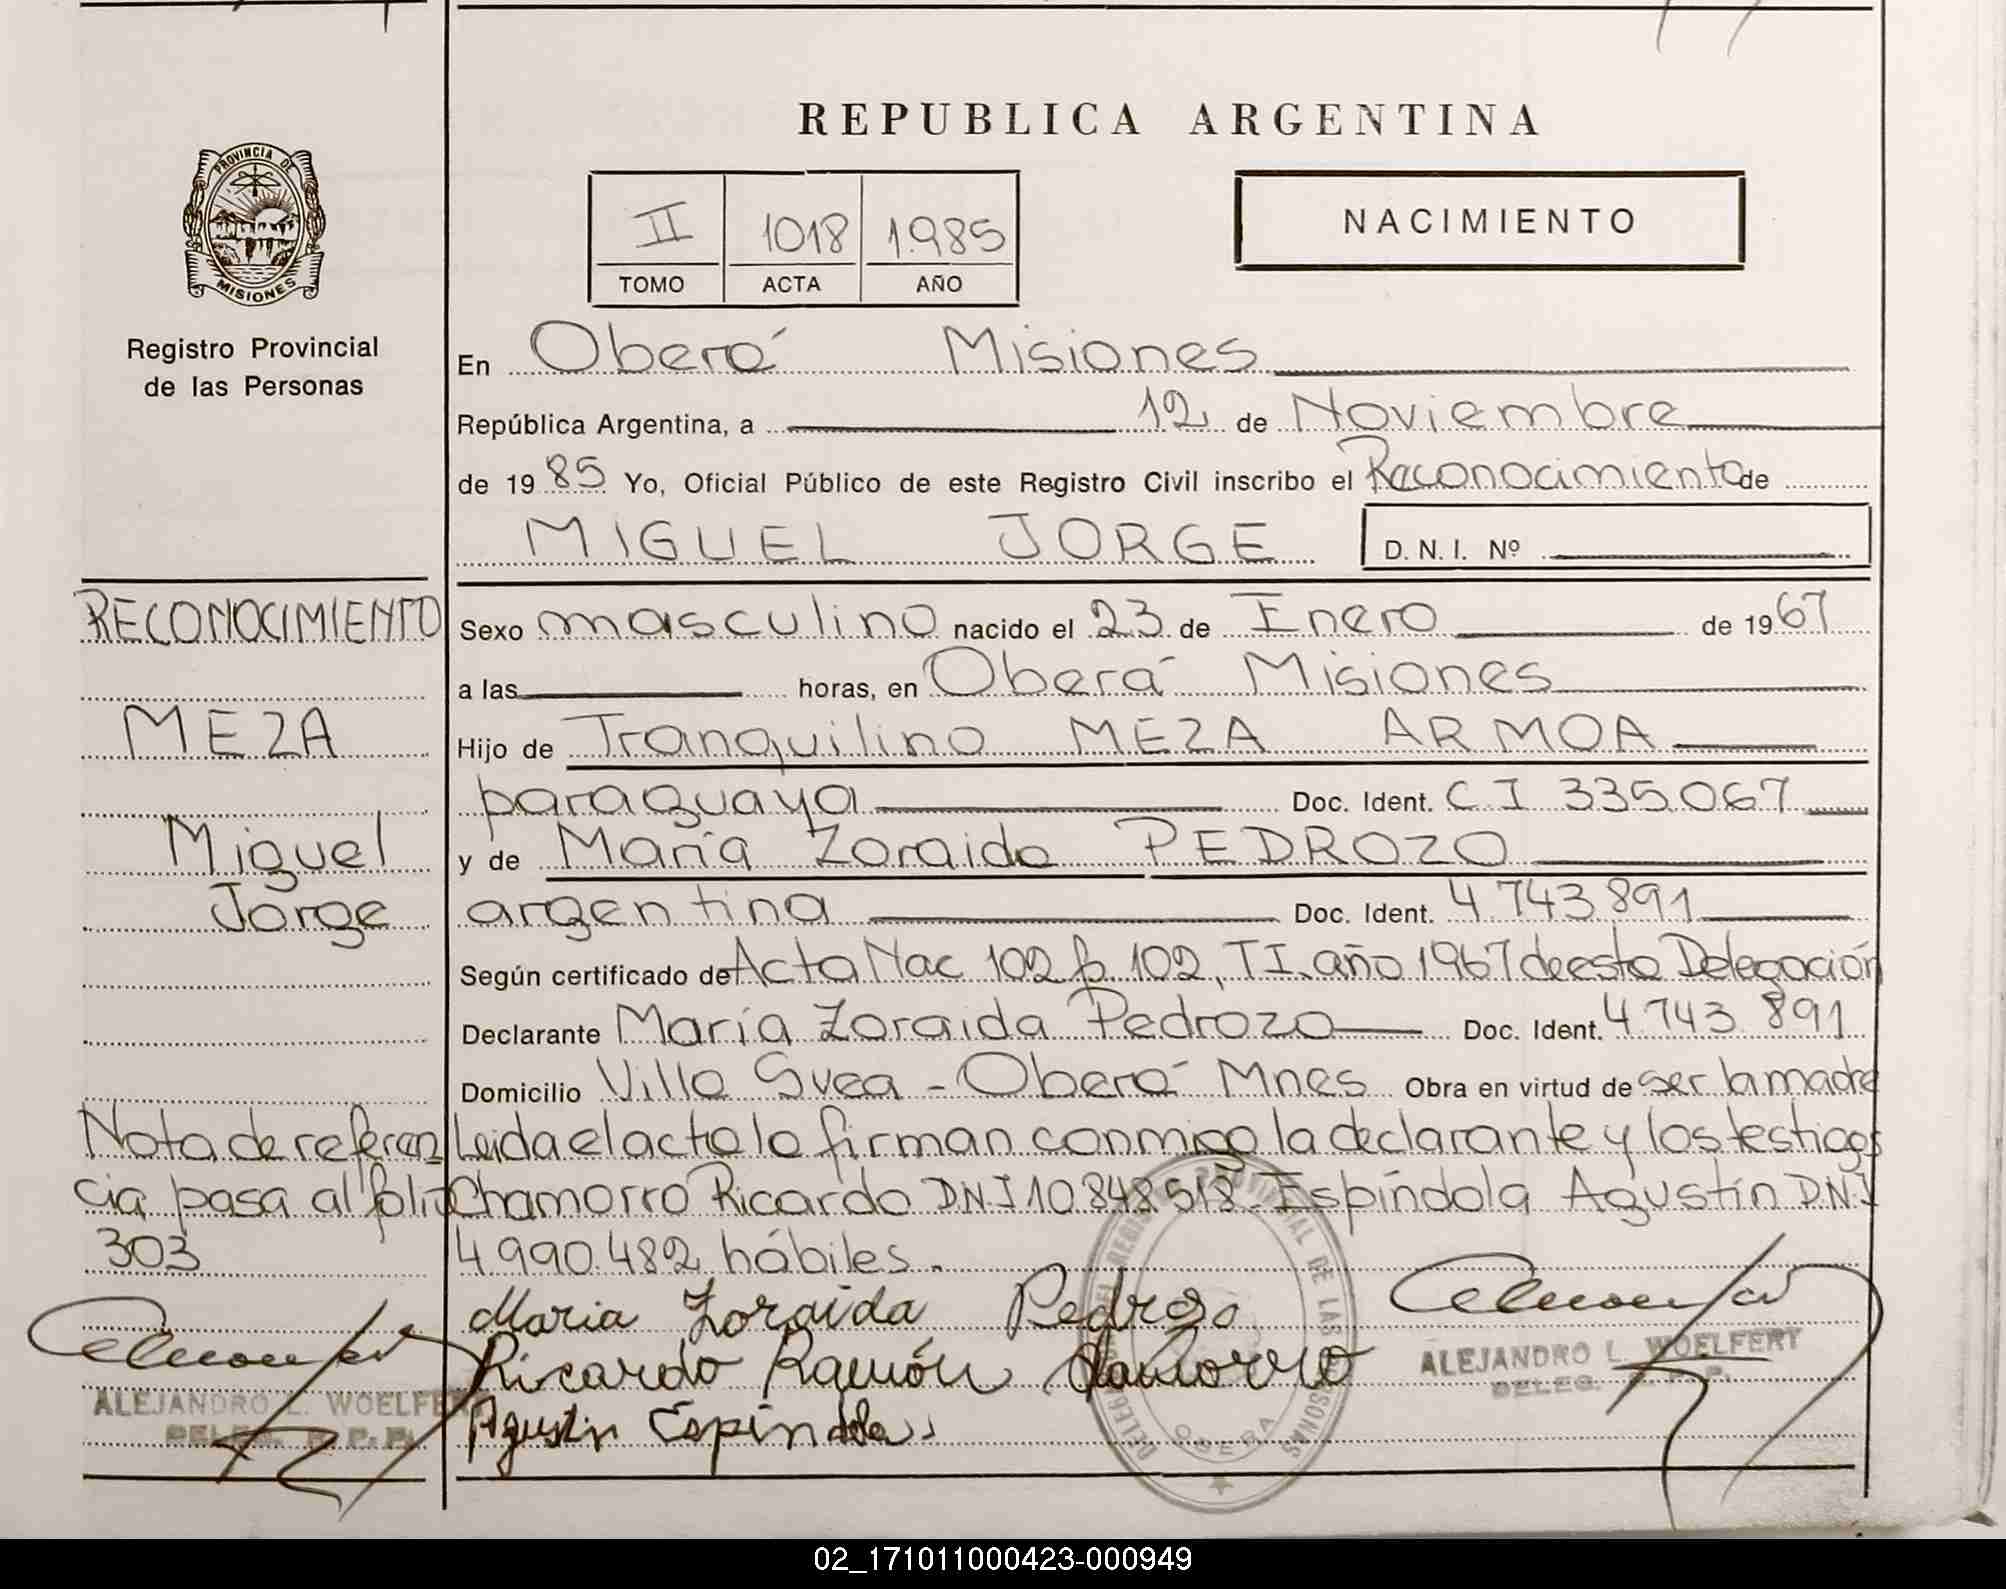 REPUBLICA ARGENTINA
PROVINCIA DE
MISIONES
II 1018 1.985
TOMO ACTA AÑO
NACIMIENTO
Registro Provincial
de las Personas
En Oberá Misiones
República Argentina, a 12 de Noviembre
de 1985 Yo, Oficial Público de este Registro Civil inscribo el Reconocimiento de
MIGUEL JORGE D.N.I. Nº
RECONOCIMIENTO
MEZA
Miguel
Jorge
Nota de referen
cia pasa al folio
303
ALEJANDRO L. WOELFERT
DELEG. R. P. P.
Sexo masculino nacido el 23 de Enero de 1967
a las horas, en Oberá Misiones
Hijo de Tranquilino MEZA ARMOA
paraguaya Doc. Ident. C I 335.067
y de María Zoraida PEDROZO
argentina Doc. Ident. 4.743.891
Según certificado de Acta Nac 102 f. 102, T I. año 1967 de esta Delegación
Declarante María Zoraida Pedrozo Doc. Ident. 4.743.891
Domicilio Villa Svea - Oberá Mnes Obra en virtud de ser la madre
Leida el acta la firman conmigo la declarante y los testigos
Chamorro Ricardo D.N.I 10.848.518. Espíndola Agustín D.N.I
4.990.482 hábiles.
Maria Zoraida Pedrozo
Ricardo Ramón Chamorro
Agustin Espindola
ALEJANDRO L. WOELFERT
DELEG. R. P. P.
PROVINCIAL DE LAS PERSONAS
OBERA
02_171011000423-000949